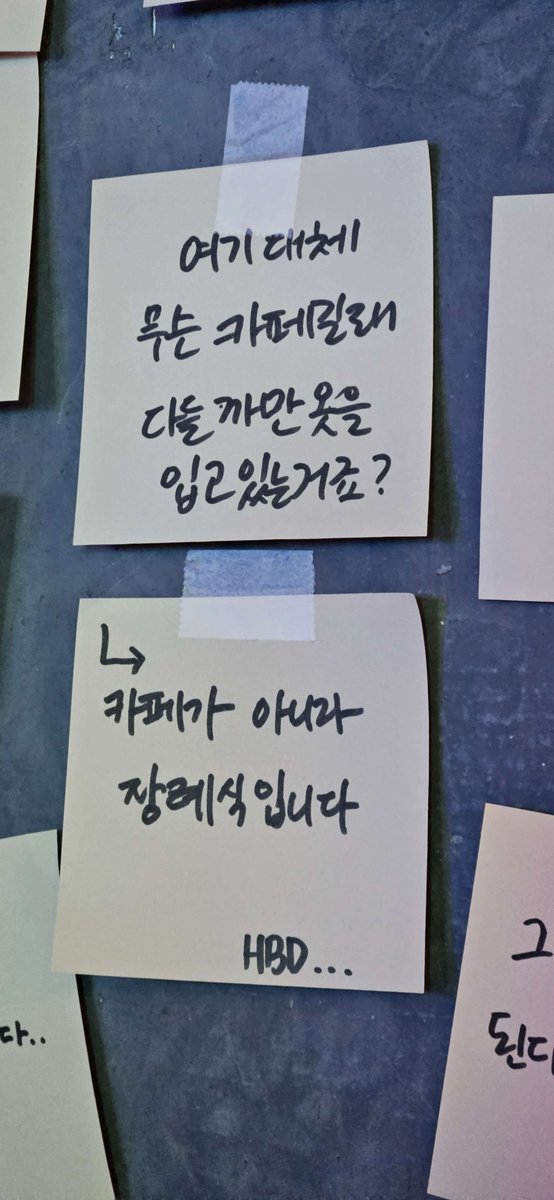 여기 대체
무슨 카페길래
다들 까만 옷을
입고 있는거죠?
↳
카페가 아니라
장례식입니다
HBD...
다..
그
된다